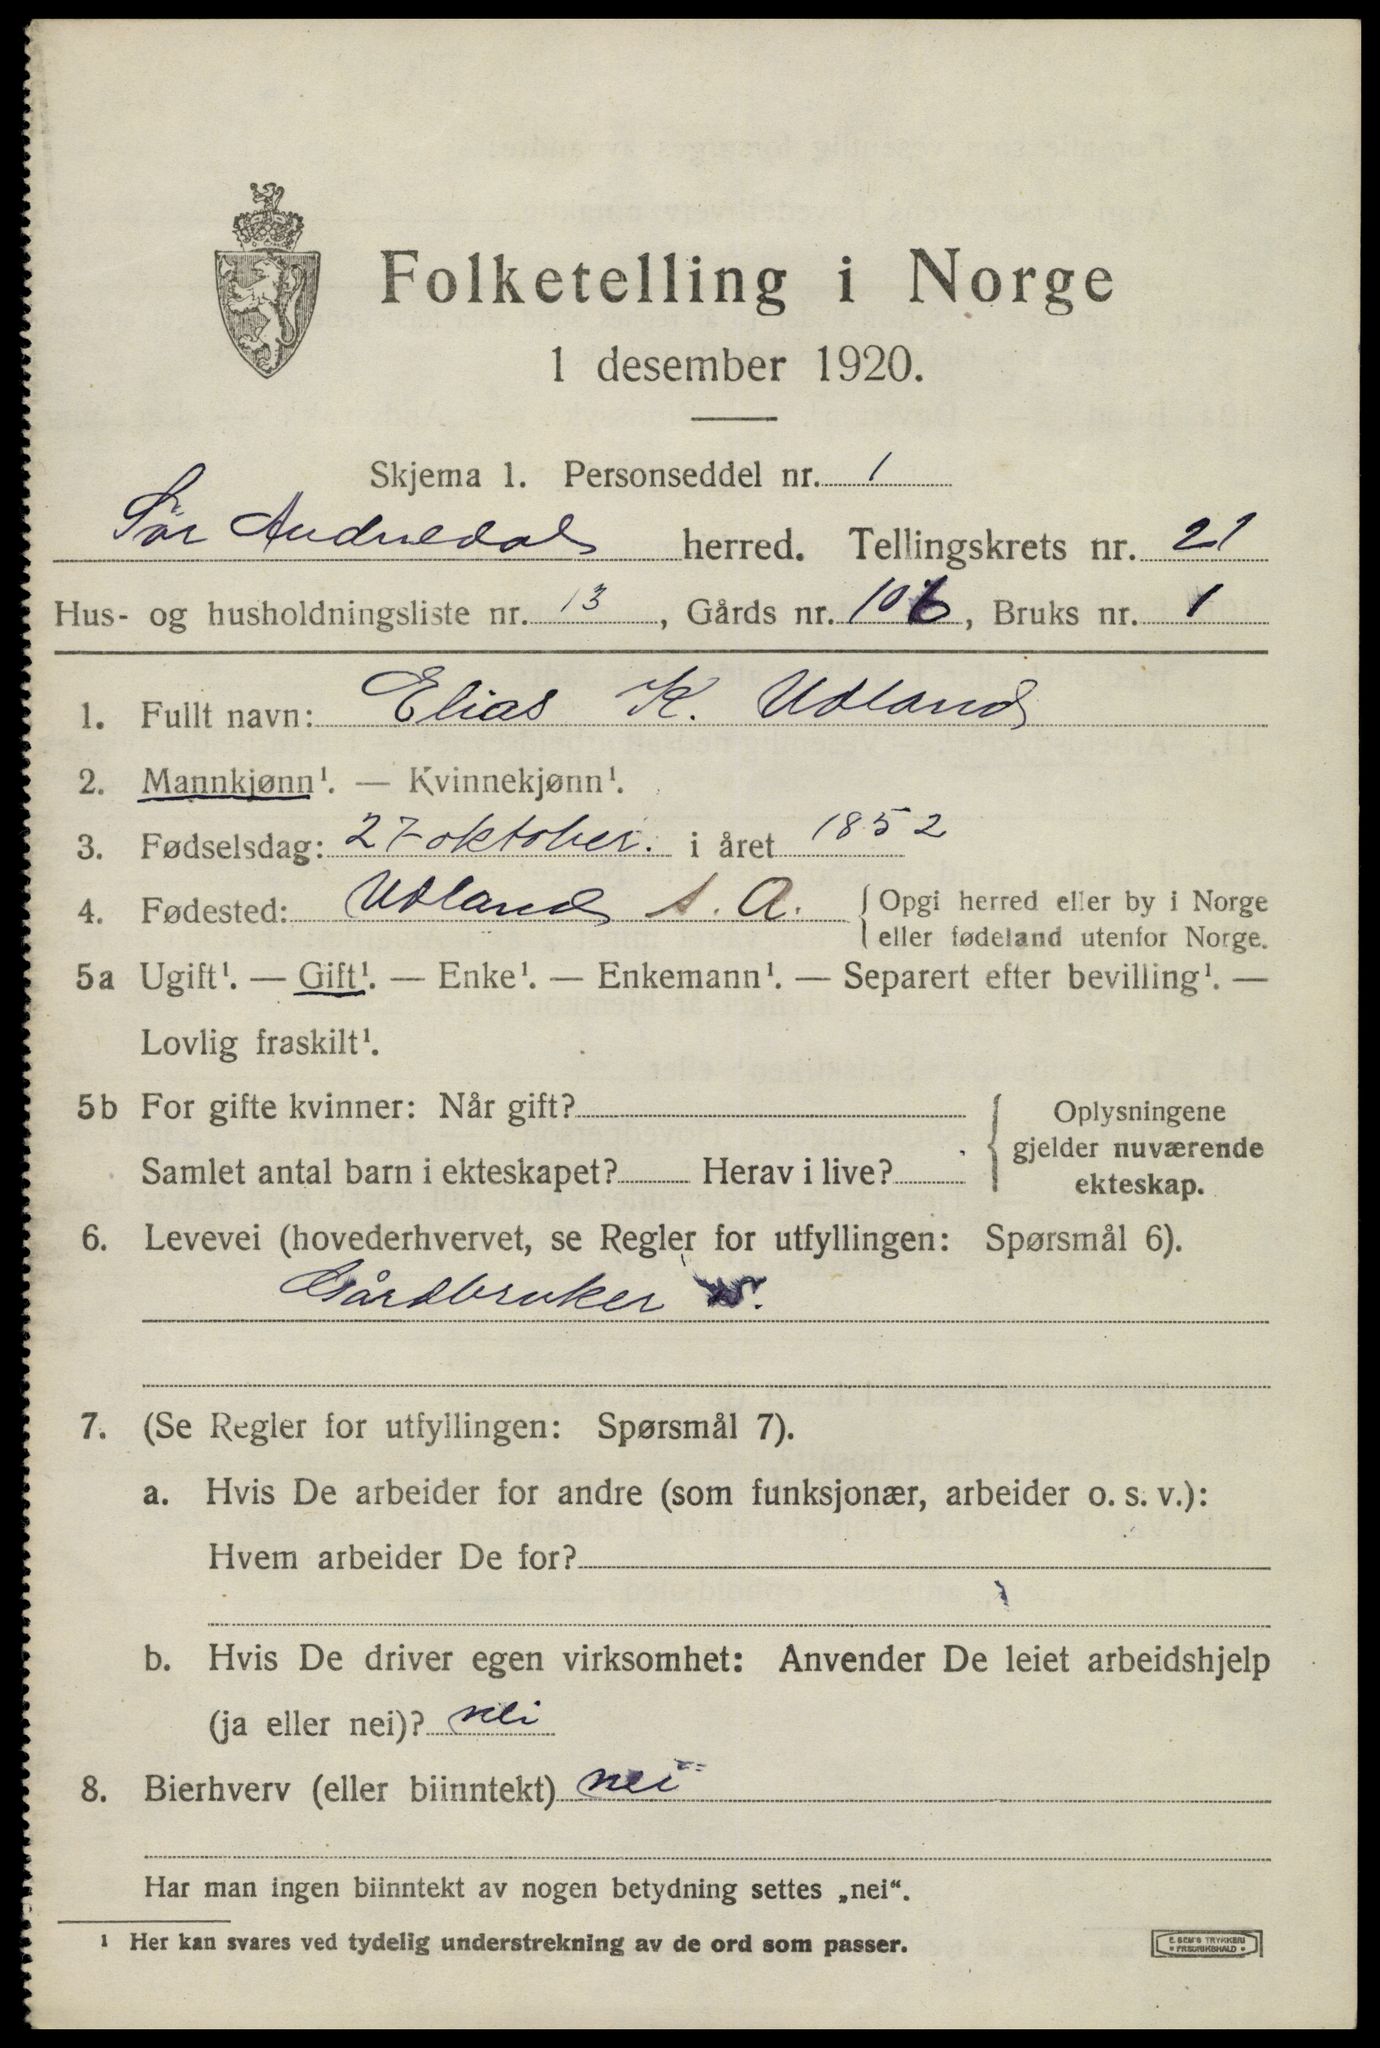 Folketelling i Norge
1 desember 1920.
Skjema 1. Personseddel nr. 1
Sør Audnedal herred. Tellingskrets nr. 21
Hus- og husholdningsliste nr. 13, Gårds nr. 106, Bruks nr. 1
1. Fullt navn: Elias K. Udland
2. Mannkjønn¹. — Kvinnekjønn¹.
3. Fødselsdag: 27 oktober. i året 1852
4. Fødested: Udland S. A. { Opgi herred eller by i Norge
eller fødeland utenfor Norge.
5a Ugift¹. — Gift¹. — Enke¹. — Enkemann¹. — Separert efter bevilling¹. —
Lovlig fraskilt¹.
5b For gifte kvinner: Når gift? { Oplysningene
gjelder nuværende
Samlet antal barn i ekteskapet? Herav i live? ekteskap.
6. Levevei (hovederhvervet, se Regler for utfyllingen: Spørsmål 6).
Gårdbruker
7. (Se Regler for utfyllingen: Spørsmål 7).
a. Hvis De arbeider for andre (som funksjonær, arbeider o. s. v.):
Hvem arbeider De for?
b. Hvis De driver egen virksomhet: Anvender De leiet arbeidshjelp
(ja eller nei)? nei
8. Bierhverv (eller biinntekt) nei
Har man ingen biinntekt av nogen betydning settes „nei“.
¹ Her kan svares ved tydelig understrekning av de ord som passer.
E. SEM'S TRYKKERI
• FREDRIKSHALD •